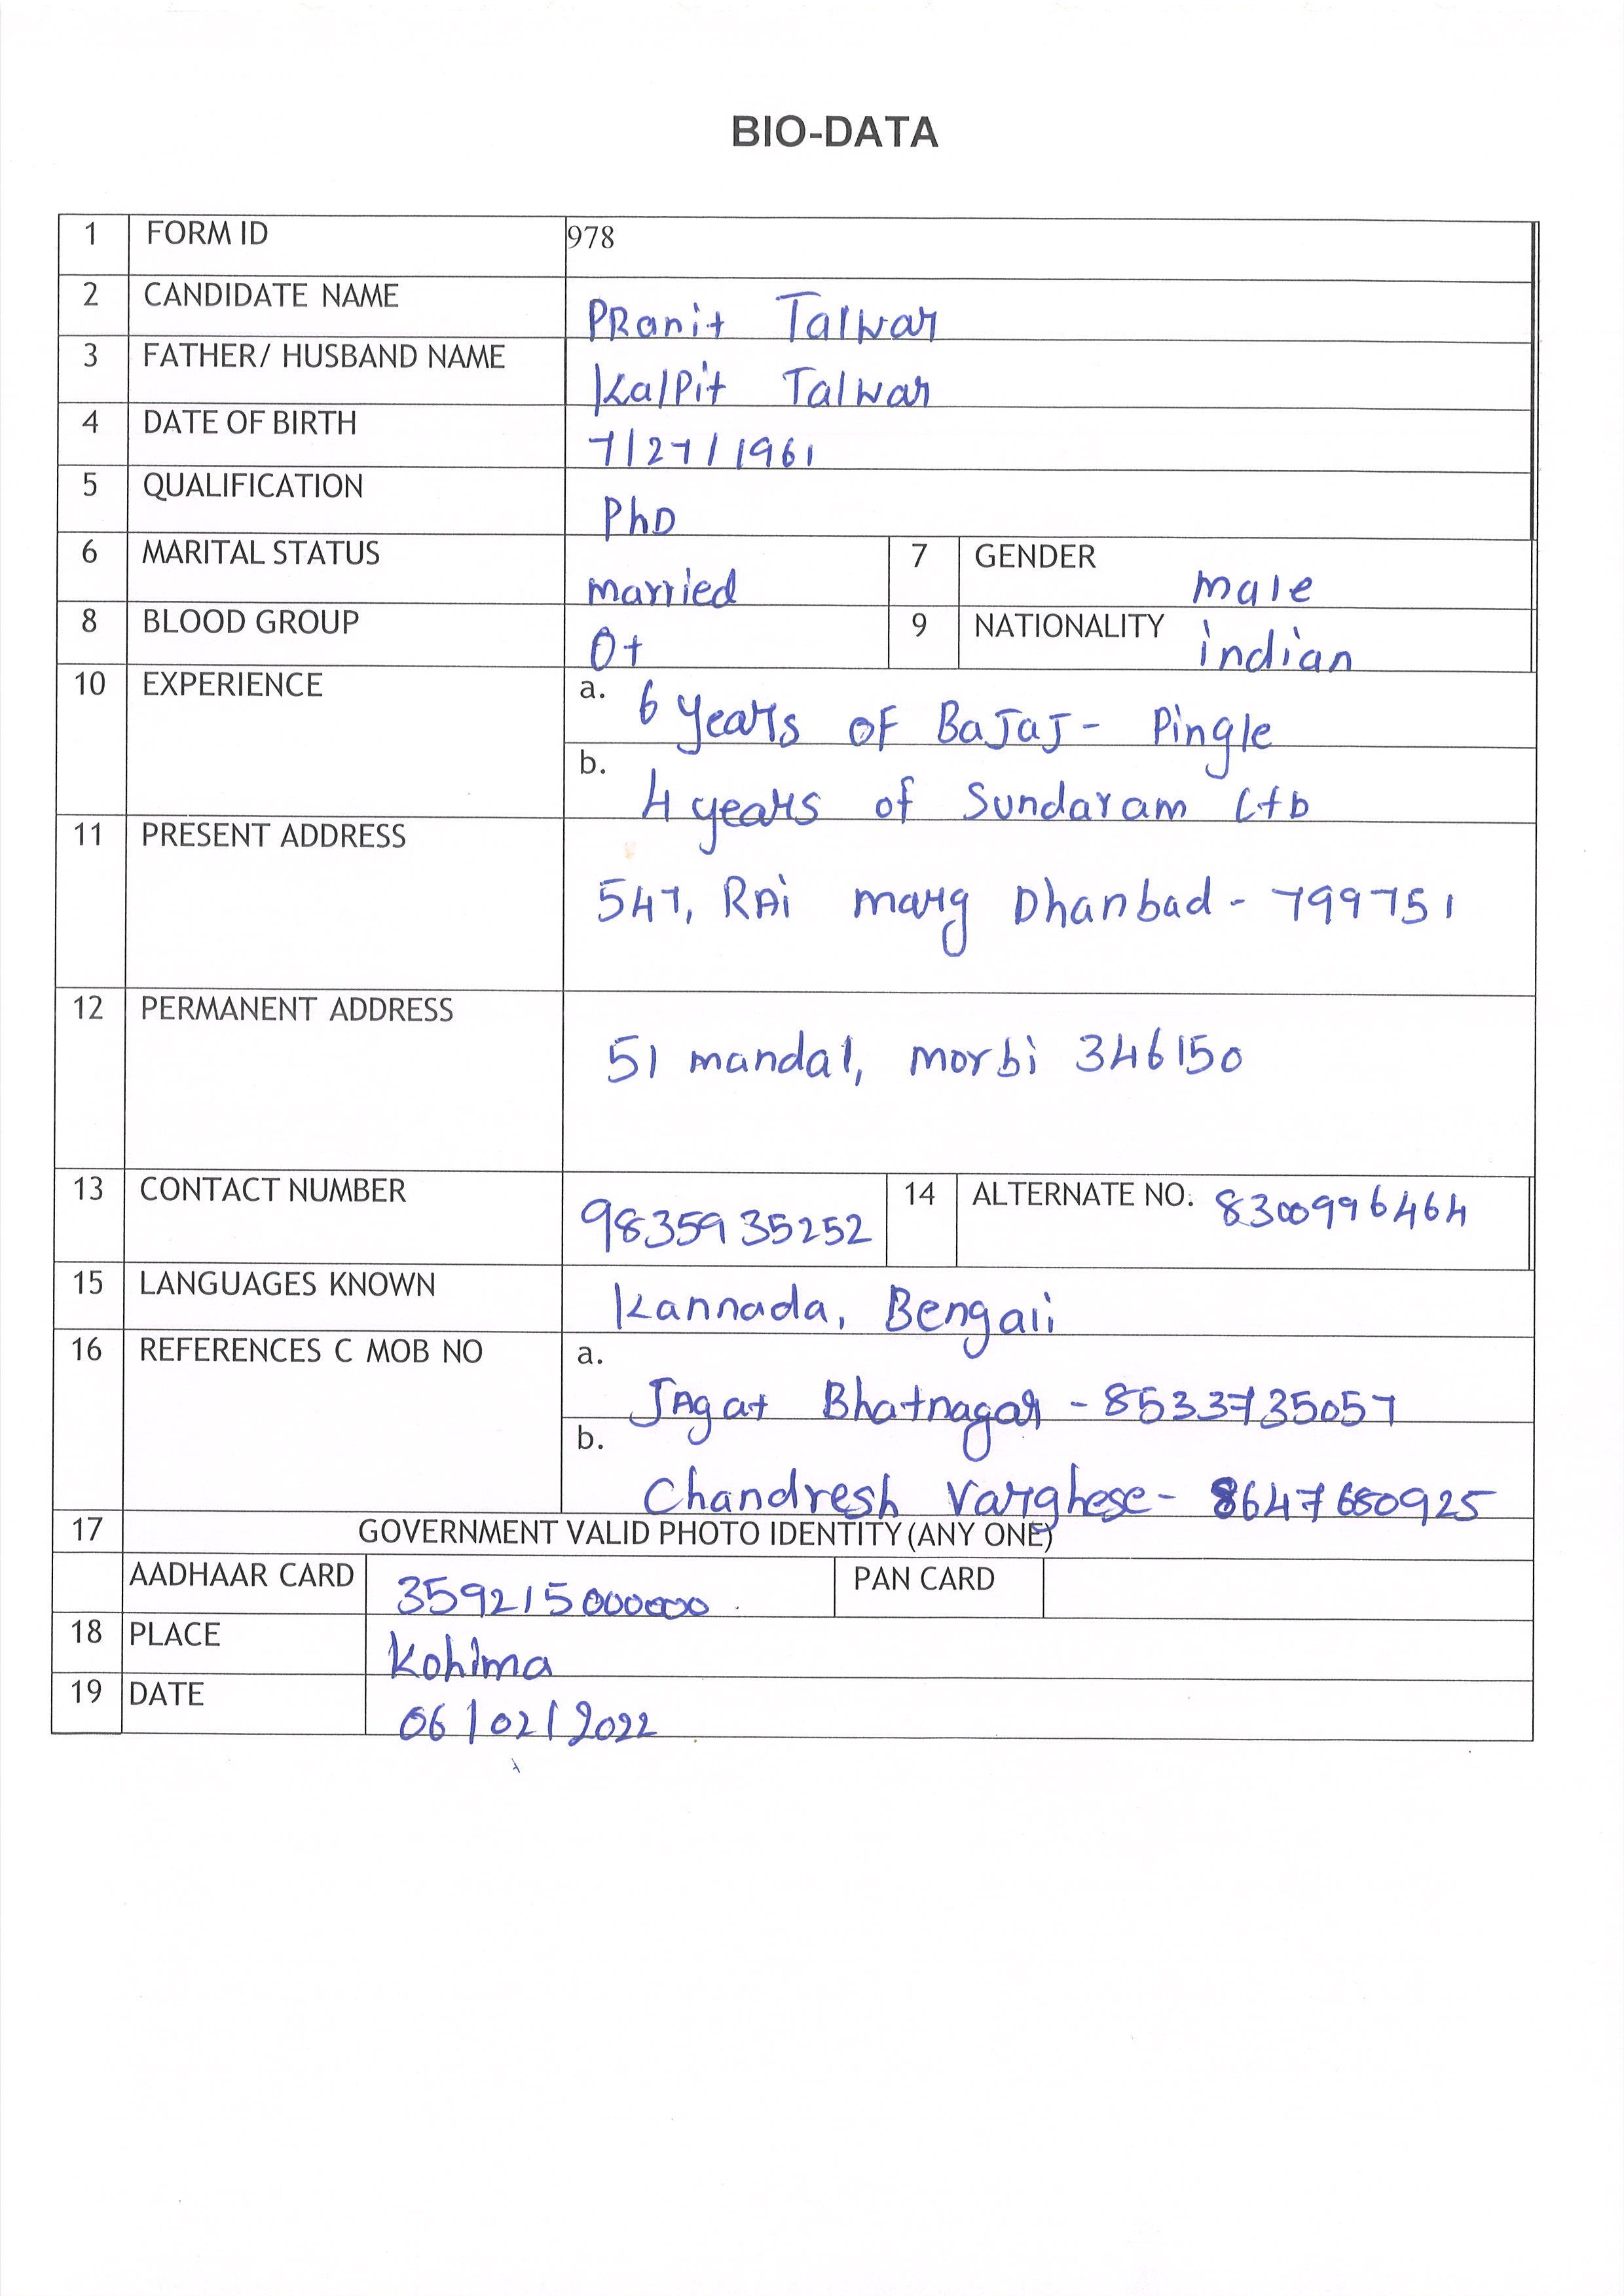 BIO-DATA
1 FORM ID 978
2 CANDIDATE NAME PRanit Talwar
3 FATHER/ HUSBAND NAME Kalpit Talwar
4 DATE OF BIRTH 7/27/1961
5 QUALIFICATION PhD
6 MARITAL STATUS married 7 GENDER male
8 BLOOD GROUP O+ 9 NATIONALITY indian
10 EXPERIENCE a. 6 years of BaJaJ- Pingle
b. 4 years of Sundaram Ltd
11 PRESENT ADDRESS
547, RAi marg Dhanbad - 799751
12 PERMANENT ADDRESS
51 mandal, morbi 346150
13 CONTACT NUMBER 9835935252 14 ALTERNATE NO. 8300996464
15 LANGUAGES KNOWN Kannada, Bengali
16 REFERENCES C MOB NO a.
JAgat Bhatnagar - 8533735057
b.
Chandresh Varghese - 8647650925
17 GOVERNMENT VALID PHOTO IDENTITY (ANY ONE)
AADHAAR CARD 359215000000 PAN CARD
18 PLACE Kohima
19 DATE 06/02/2022